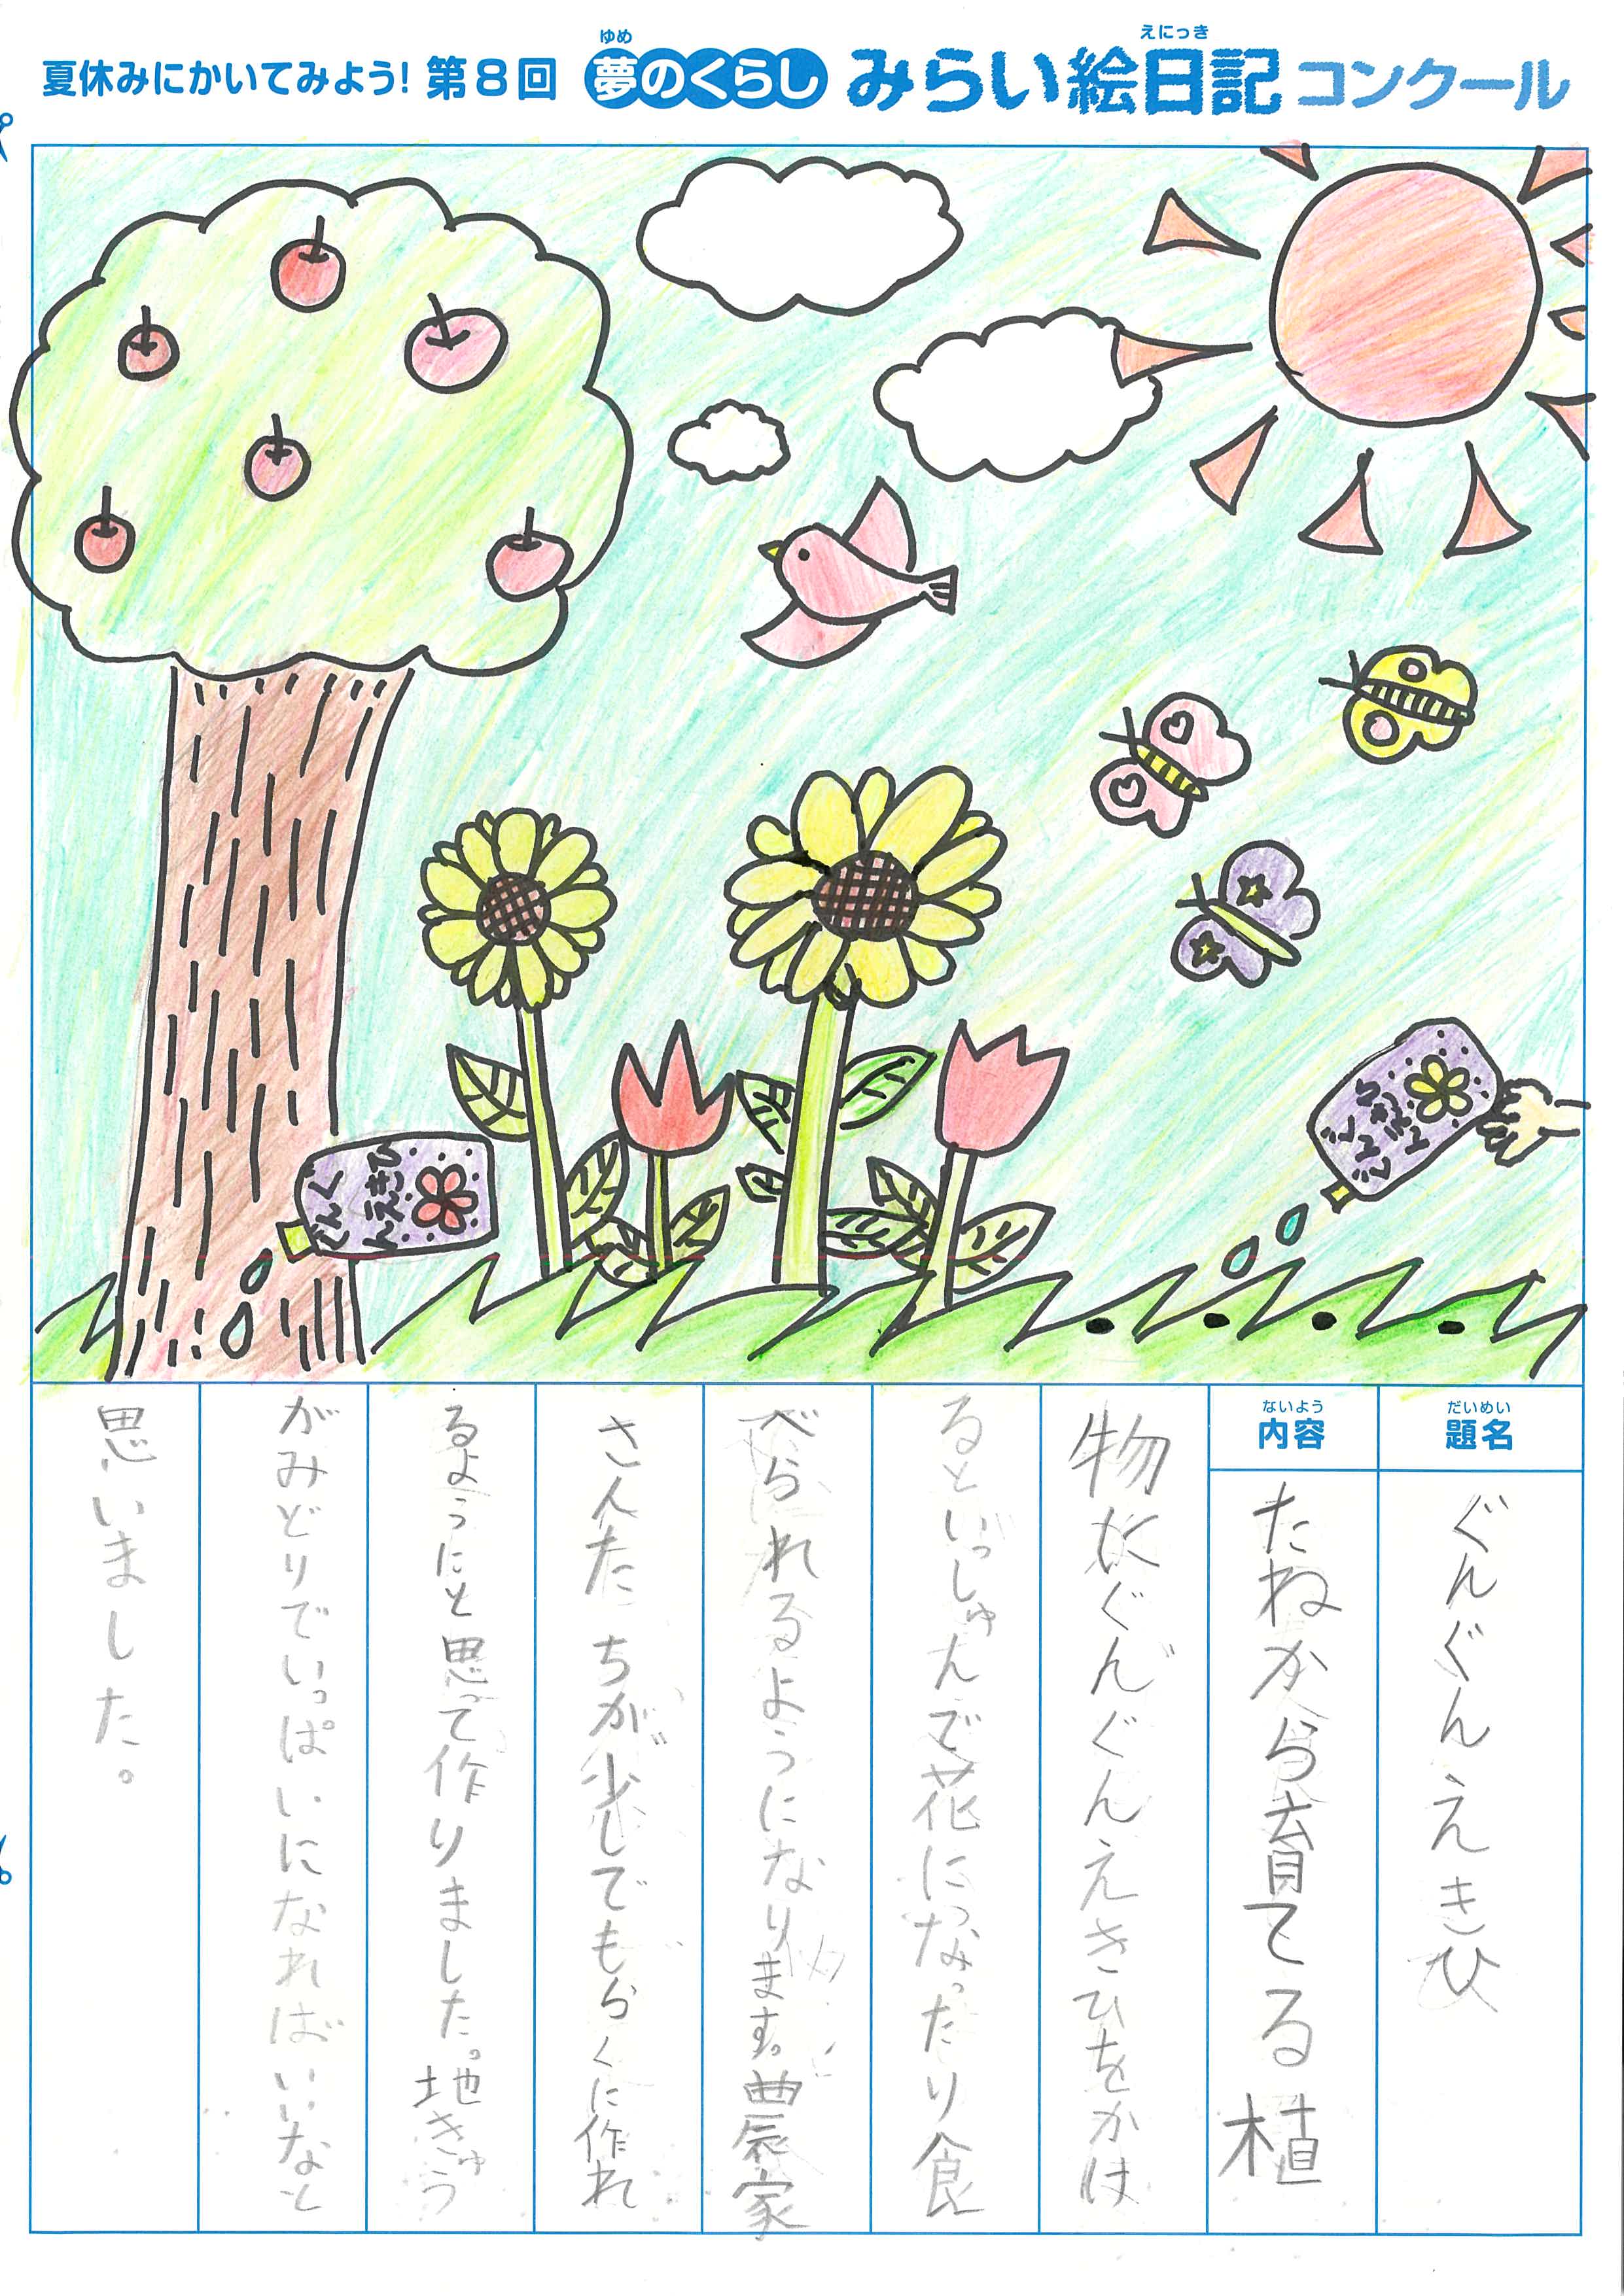 ゆめ
えにっき
夏休みにかいてみよう! 第8回 夢のくらし みらい絵日記コンクール
ぐんぐ
んえきひ
ぐんぐん
えきひ
だいめい
題名
ぐんぐんえきひ
ないよう
内容
たねから育てる植
物にぐんぐんえきひをかけ
るといっしゅんで花になったり食
べられるようになります。農家
さんたちが少しでもらくに作れ
るようにと思って作りました。地きゅう
がみどりでいっぱいになればいいなと
思いました。